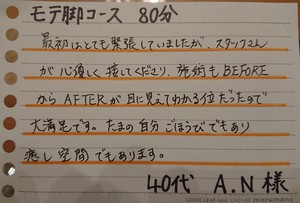 モテ脚コース 80分
最初はとても緊張していましたが、スタッフさん
が心優しく接してくださり、施術もBEFORE
からAFTERが目に見えてわかる位だったので
大満足です。たまの自分ごほうびでもあり
癒し空間でもあります。
40代 A.N様